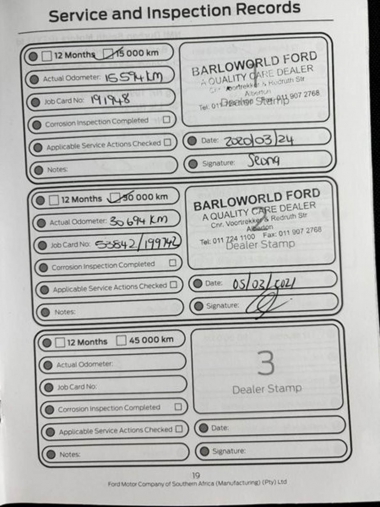 Service and Inspection Records
12 Months 15 000 km
Actual Odometer: 15594 km
Job Card No: 191948
Corrosion Inspection Completed
Applicable Service Actions Checked
Notes:
BARLOWORLD FORD
A QUALITY CARE DEALER
Cnr. Voortrekker & Redruth Str
Alberton
Dealer Stamp
Date: 2020/03/24
Signature:
12 Months 30 000 km
Actual Odometer: 30694 km
Job Card No:
Corrosion Inspection Completed
Applicable Service Actions Checked
Notes:
BARLOWORLD FORD
A QUALITY CARE DEALER
Cnr. Voortrekker & Redruth Str
Alberton
Tel: 011 724 1100 Fax: 011 907 2768
Dealer Stamp
Date: 05/03/2021
Signature:
12 Months 45 000 km
Actual Odometer:
Job Card No:
Corrosion Inspection Completed
Applicable Service Actions Checked
Notes:
3
Dealer Stamp
Date:
Signature:
19
Ford Motor Company of Southern Africa (Manufacturing) (Pty) Ltd